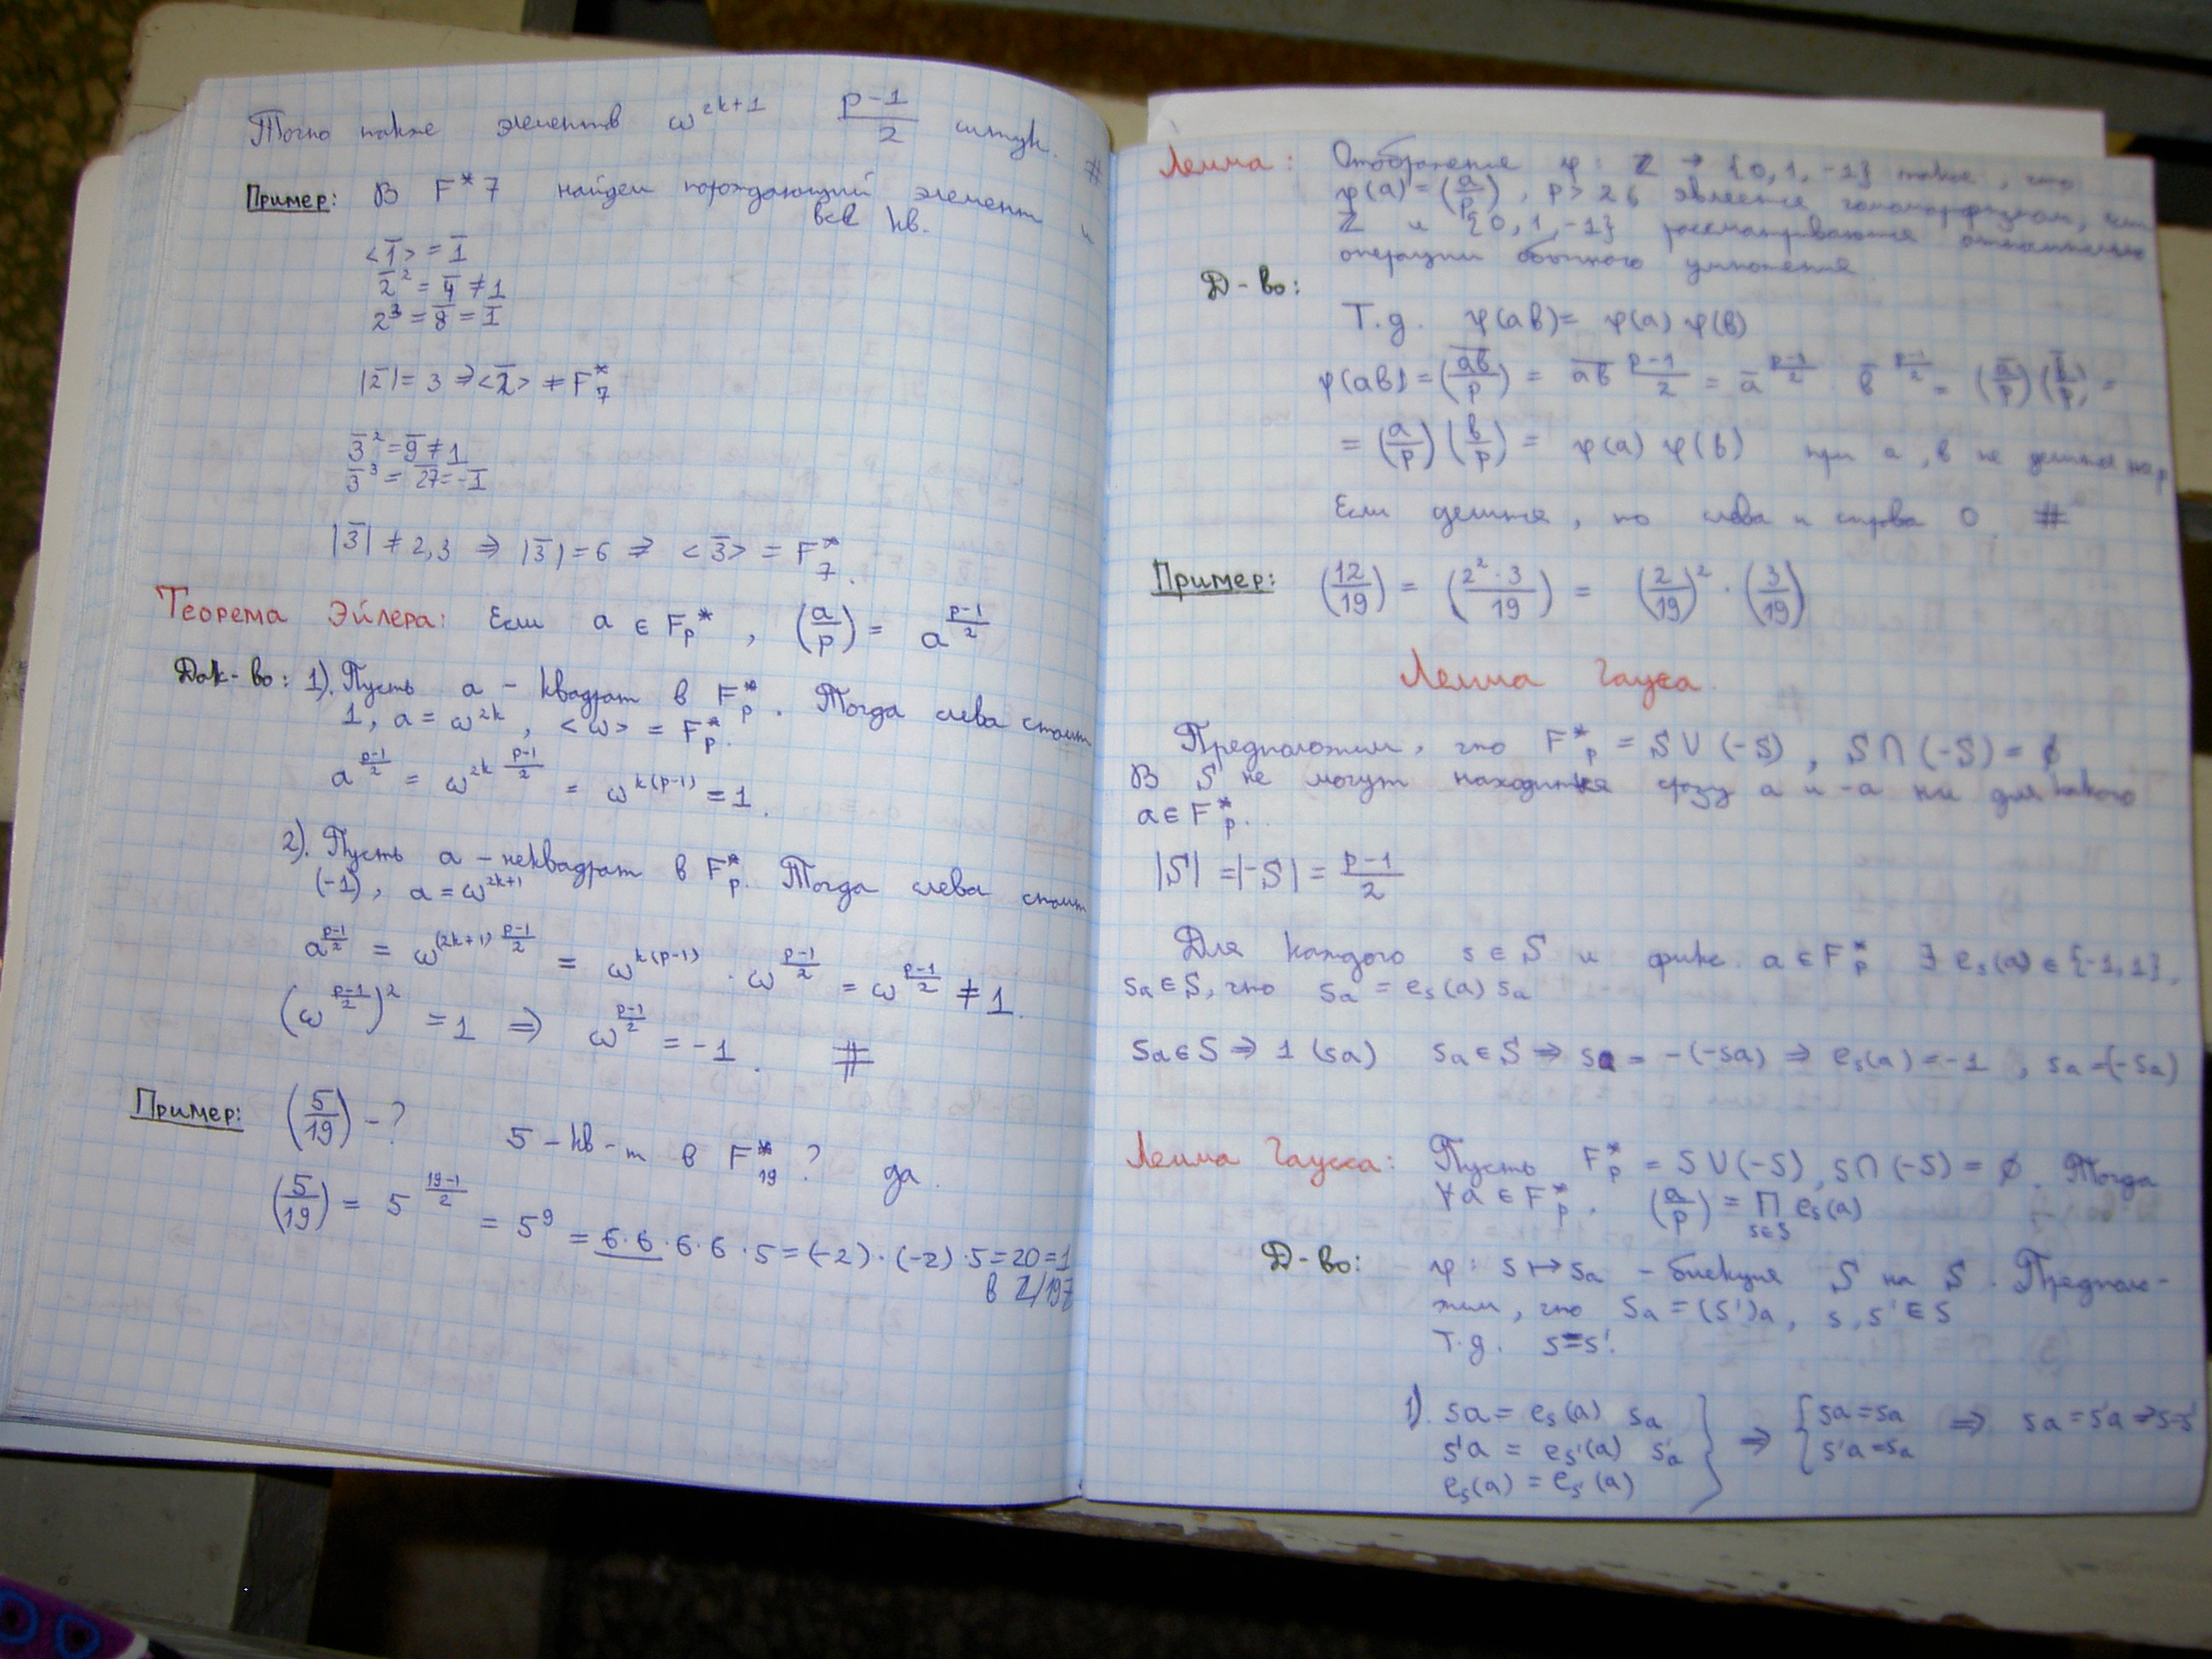 Точно также элементов ω^{2k+1} \frac{p-1}{2} штук. #
Пример: В F*7 найдем порождающий элемент и
все кв.
<1̄> = 1̄
2̄² = 4̄ ≠ 1
2³ = 8̄ = 1̄
|2̄| = 3 ⇒ <2̄> ≠ F*_7
3̄² = 9̄ ≠ 1
3̄³ = 27 = -1̄
|3̄| ≠ 2,3 ⇒ |3̄| = 6 ⇒ <3̄> = F*_7.
Теорема Эйлера: Если a ∈ F_p*, (a/p) = a^{\frac{p-1}{2}}
Док-во: 1). Пусть a - квадрат в F*_p. Тогда слева стоит
1, a = ω^{2k}, <ω> = F*_p.
a^{\frac{p-1}{2}} = ω^{2k \frac{p-1}{2}} = ω^{k(p-1)} = 1.
2). Пусть a - неквадрат в F*_p. Тогда слева стоит
(-1), a = ω^{2k+1}
a^{\frac{p-1}{2}} = ω^{(2k+1) \frac{p-1}{2}} = ω^{k(p-1)} · ω^{\frac{p-1}{2}} = ω^{\frac{p-1}{2}} ≠ 1.
(ω^{\frac{p-1}{2}})² = 1 ⇒ ω^{\frac{p-1}{2}} = -1. #
Пример: (5/19) - ? 5 - кв-т в F*_19? да.
(5/19) = 5^{\frac{19-1}{2}} = 5⁹ = 6·6·6·6·5 = (-2)·(-2)·5 = 20 = 1
в Z/19Z
Лемма: Отображение φ: Z → {0, 1, -1} такое, что
φ(a) = (a/p), p > 2 является гомоморфизмом, если
Z и {0, 1, -1} рассматриваются относительно
операции обычного умножения.
Д-во:
Т.д. φ(aв) = φ(a) φ(в)
φ(aв) = (aв/p) = aв^{\frac{p-1}{2}} = ā^{\frac{p-1}{2}} · в̄^{\frac{p-1}{2}} = (ā/p)(в̄/p) =
= (a/p)(в/p) = φ(a) φ(в) при a, в не делится на p
Если делится, то слева и справа 0. #
Пример: (12/19) = (2²·3/19) = (2/19)² · (3/19)
Лемма Гауса.
Предположим, что F*_p = S ∪ (-S), S ∩ (-S) = ∅
В S не могут находиться сразу a и -a ни для какого
a ∈ F*_p.
|S| = |-S| = \frac{p-1}{2}
Для каждого s ∈ S и фикс. a ∈ F*_p ∃ e_s(a) ∈ {-1, 1},
s_a ∈ S, что sa = e_s(a) s_a
sa ∈ S ⇒ 1 (sa) sa ∈ S ⇒ sa = -(-sa) ⇒ e_s(a) = -1, s_a = (-sa)
Лемма Гаусса: Пусть F*_p = S ∪ (-S), S ∩ (-S) = ∅. Тогда
∀a ∈ F*_p. (a/p) = ∏_{s∈S} e_s(a)
Д-во: φ: s ↦ s_a - биекция S на S. Предполо-
жим, что s_a = (s')a, s, s' ∈ S
Т.д. s = s'.
1). sa = e_s(a) s_a
s'a = e_s'(a) s'_a
e_s(a) = e_s'(a)
} ⇒ { sa = s_a
s'a = s_a
⇒ sa = s'a ⇒ s = s'